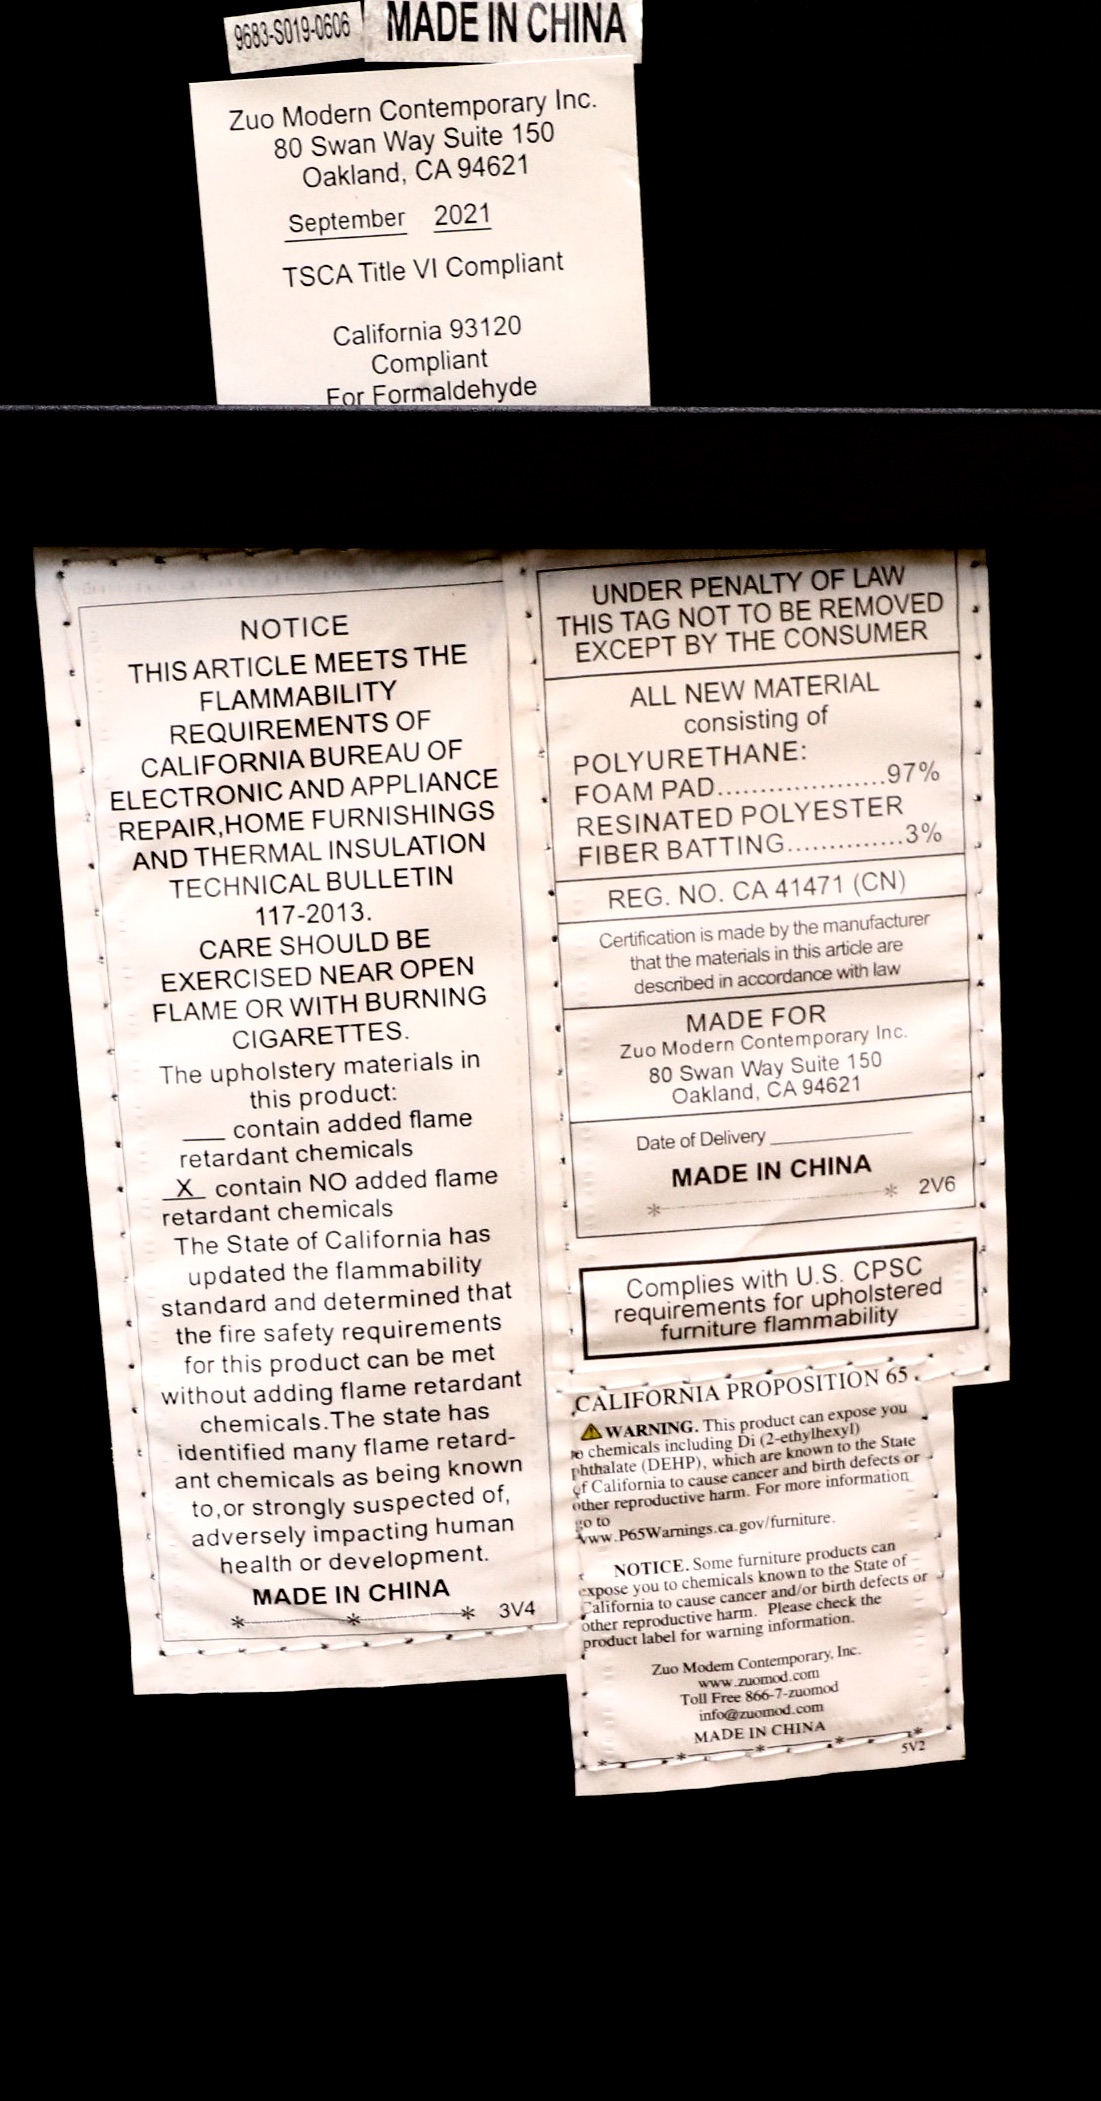 9683-S019-0606
MADE IN CHINA
Zuo Modern Contemporary Inc.
80 Swan Way Suite 150
Oakland, CA 94621
September 2021
TSCA Title VI Compliant
California 93120
Compliant
For Formaldehyde
NOTICE
THIS ARTICLE MEETS THE
FLAMMABILITY
REQUIREMENTS OF
CALIFORNIA BUREAU OF
ELECTRONIC AND APPLIANCE
REPAIR,HOME FURNISHINGS
AND THERMAL INSULATION
TECHNICAL BULLETIN
117-2013.
CARE SHOULD BE
EXERCISED NEAR OPEN
FLAME OR WITH BURNING
CIGARETTES.
The upholstery materials in
this product:
___ contain added flame
retardant chemicals
_X_ contain NO added flame
retardant chemicals
The State of California has
updated the flammability
standard and determined that
the fire safety requirements
for this product can be met
without adding flame retardant
chemicals.The state has
identified many flame retard-
ant chemicals as being known
to,or strongly suspected of,
adversely impacting human
health or development.
MADE IN CHINA
3V4
UNDER PENALTY OF LAW
THIS TAG NOT TO BE REMOVED
EXCEPT BY THE CONSUMER
ALL NEW MATERIAL
consisting of
POLYURETHANE:
FOAM PAD....................97%
RESINATED POLYESTER
FIBER BATTING..............3%
REG. NO. CA 41471 (CN)
Certification is made by the manufacturer
that the materials in this article are
described in accordance with law
MADE FOR
Zuo Modern Contemporary Inc.
80 Swan Way Suite 150
Oakland, CA 94621
Date of Delivery ____________
MADE IN CHINA
2V6
Complies with U.S. CPSC
requirements for upholstered
furniture flammability
CALIFORNIA PROPOSITION 65
WARNING. This product can expose you
to chemicals including Di (2-ethylhexyl)
phthalate (DEHP), which are known to the State
of California to cause cancer and birth defects or
other reproductive harm. For more information
go to
www.P65Warnings.ca.gov/furniture.
NOTICE. Some furniture products can
expose you to chemicals known to the State of
California to cause cancer and/or birth defects or
other reproductive harm. Please check the
product label for warning information.
Zuo Modern Contemporary, Inc.
www.zuomod.com
Toll Free 866-7-zuomod
info@zuomod.com
MADE IN CHINA
5V2